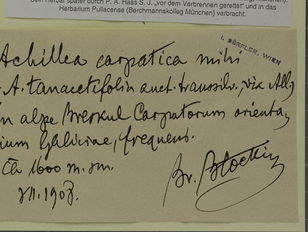 dem Herbar später durch P. A. Haas S. J. „vor dem Verbrennen gerettet" und in das
Herbarium Pullacense (Berchmannskolleg München) verbracht.
I. DÖRFLER, WIEN
Achillea carpatica mihi
A. tanacetifolia auct. transsilv. vix All.
in alpe Breskul Carpatorum orienta
ium Galiciae, frequens.
1600 m.
VII. 1903.
Br. Błocki